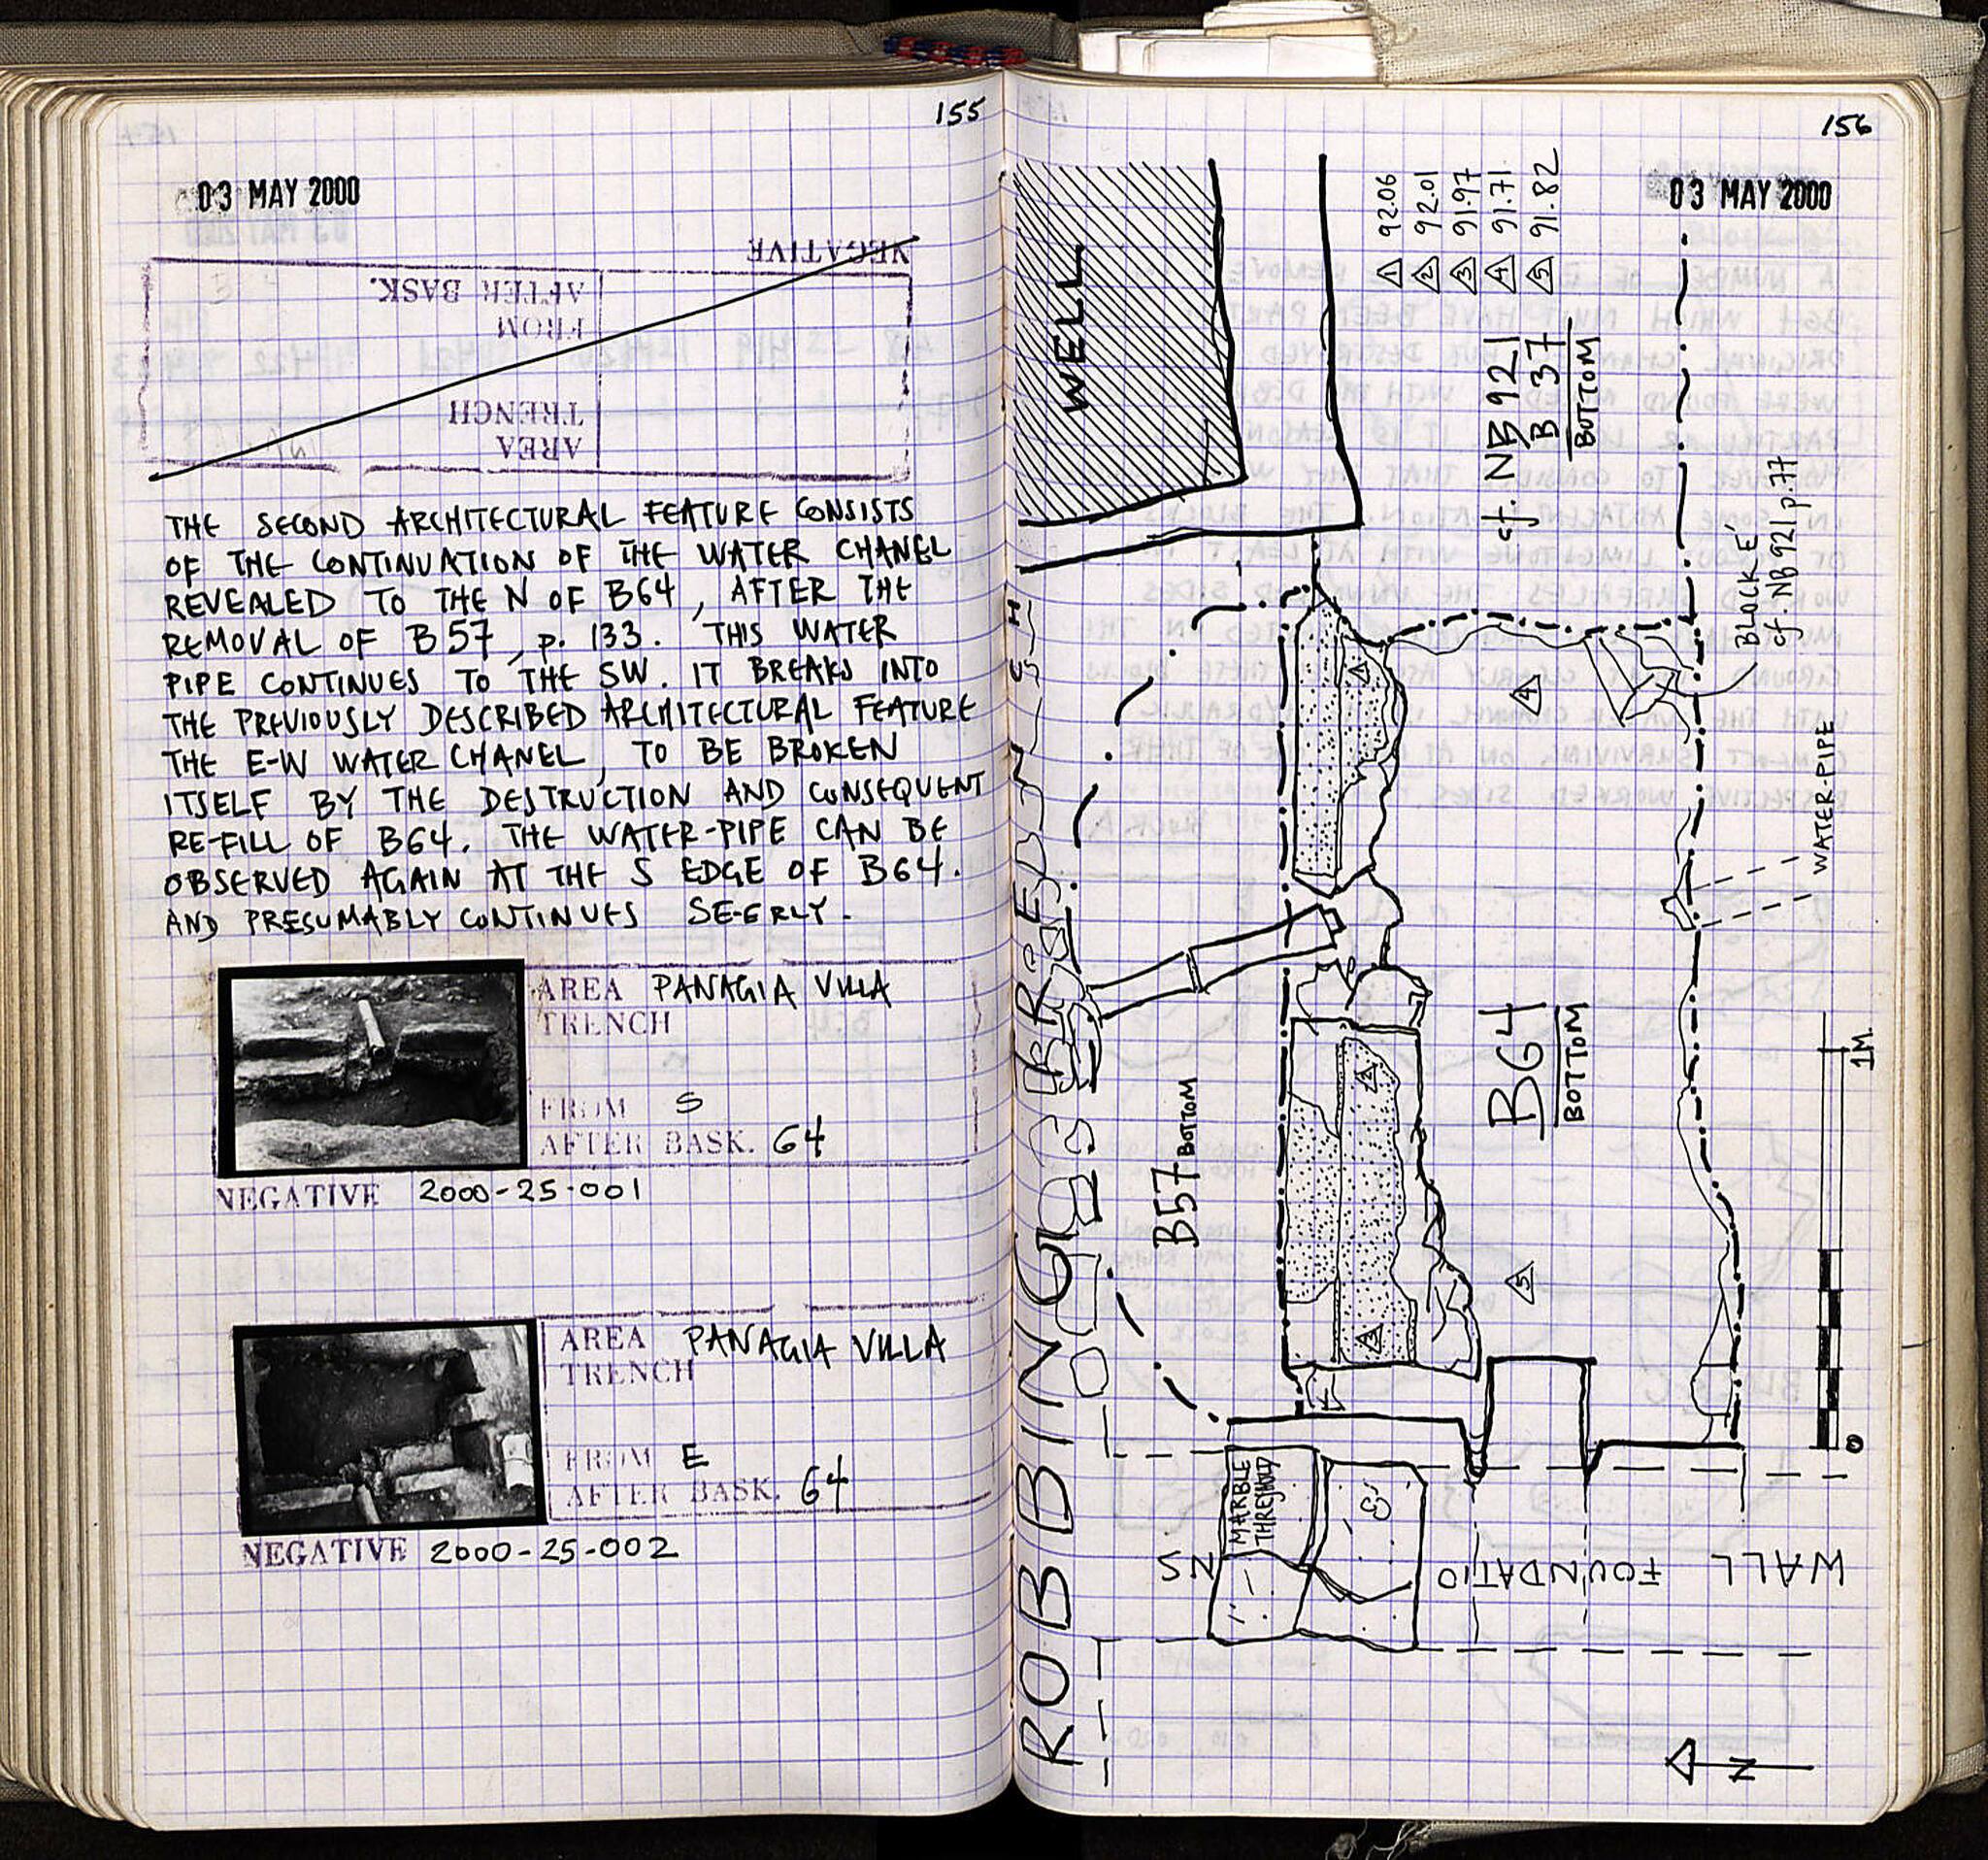 155
03 MAY 2000
NEGATIVE
AFTER BASK.
FROM
TRENCH
AREA
THE SECOND ARCHITECTURAL FEATURE CONSISTS
OF THE CONTINUATION OF THE WATER CHANEL
REVEALED TO THE N OF B64, AFTER THE
REMOVAL OF B57, p. 133. THIS WATER
PIPE CONTINUES TO THE SW. IT BREAKS INTO
THE PREVIOUSLY DESCRIBED ARCHITECTURAL FEATURE
THE E-W WATER CHANEL, TO BE BROKEN
ITSELF BY THE DESTRUCTION AND CONSEQUENT
RE-FILL OF B64. THE WATER-PIPE CAN BE
OBSERVED AGAIN AT THE S EDGE OF B64.
AND PRESUMABLY CONTINUES SE-ERLY.
AREA PANAGIA VILLA
TRENCH
FROM S
AFTER BASK. 64
NEGATIVE 2000-25-001
AREA PANAGIA VILLA
TRENCH
FROM E
AFTER BASK. 64
NEGATIVE 2000-25-002
156
03 MAY 2000
WELL
1 92.06
2 92.01
3 91.97
4 91.71
5 91.82
cf. NB 921
B 37
BOTTOM
BLOCK E'
cf. NB 921 p.77
WATER-PIPE
ROBBING
B57 BOTTOM
B64
BOTTOM
1
2
3
4
5
1M
0
MARBLE
THRESHOLD
WALL FOUNDATIONS
N